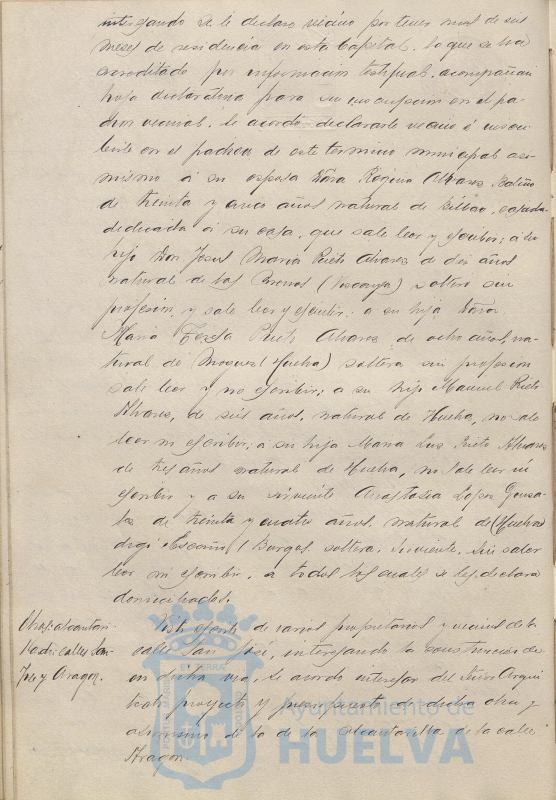 interesando se le declare vecino por tener mas de seis
meses de residencia en esta Capital, lo que se ha
acreditado por informacion testifical, acompañan
hoja declaratoria para su inscripcion en el pa-
dron vecinal. Se acordó declararle vecino é inscri-
birle en el padron de este término municipal asi-
mismo á su esposa Dña Regina Alvarez
de treinta y cinco años natural de Bilbao, casada
dedicada á su casa, que sabe leer y escribir; á su
hijo Don Jesus Maria Prieto Alvarez de años
natural de los (Vizcaya) soltero sin
profesion y sabe leer y escribir; a su hija Dña
Maria Prieto Alvarez de ocho años, na-
tural de Moguer (Huelva) soltera sin profesion
sabe leer y no escribir; a su hijo Manuel Prieto
Alvarez, de seis años, natural de Huelva, no sabe
leer ni escribir, a su hija Maria Luz Prieto Alvarez
de tres años natural de Huelva, no sabe leer ni
escribir y a su sirviente Anastasia Lopez Gonza-
lez de treinta y cuatro años, natural de (Huelva)
digo (Burgos) soltera, sirviente, sin saber
leer ni escribir, a todos los cuales se les declara
domiciliados.
Obras alcantari-
llado calles San
José y Aragon.
Visto escrito de varios propietarios y vecinos de la
calle San José, interesando la construccion de
en dicha via, se acordó interesar del Señor Arqui
tecto proyecto y presupuesto de dicha obra y
de la de la alcantarilla de la calle
Aragon.
Ayuntamiento de
HUELVA